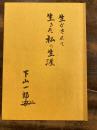 生かされて
生きた私の生涯
下山一郎